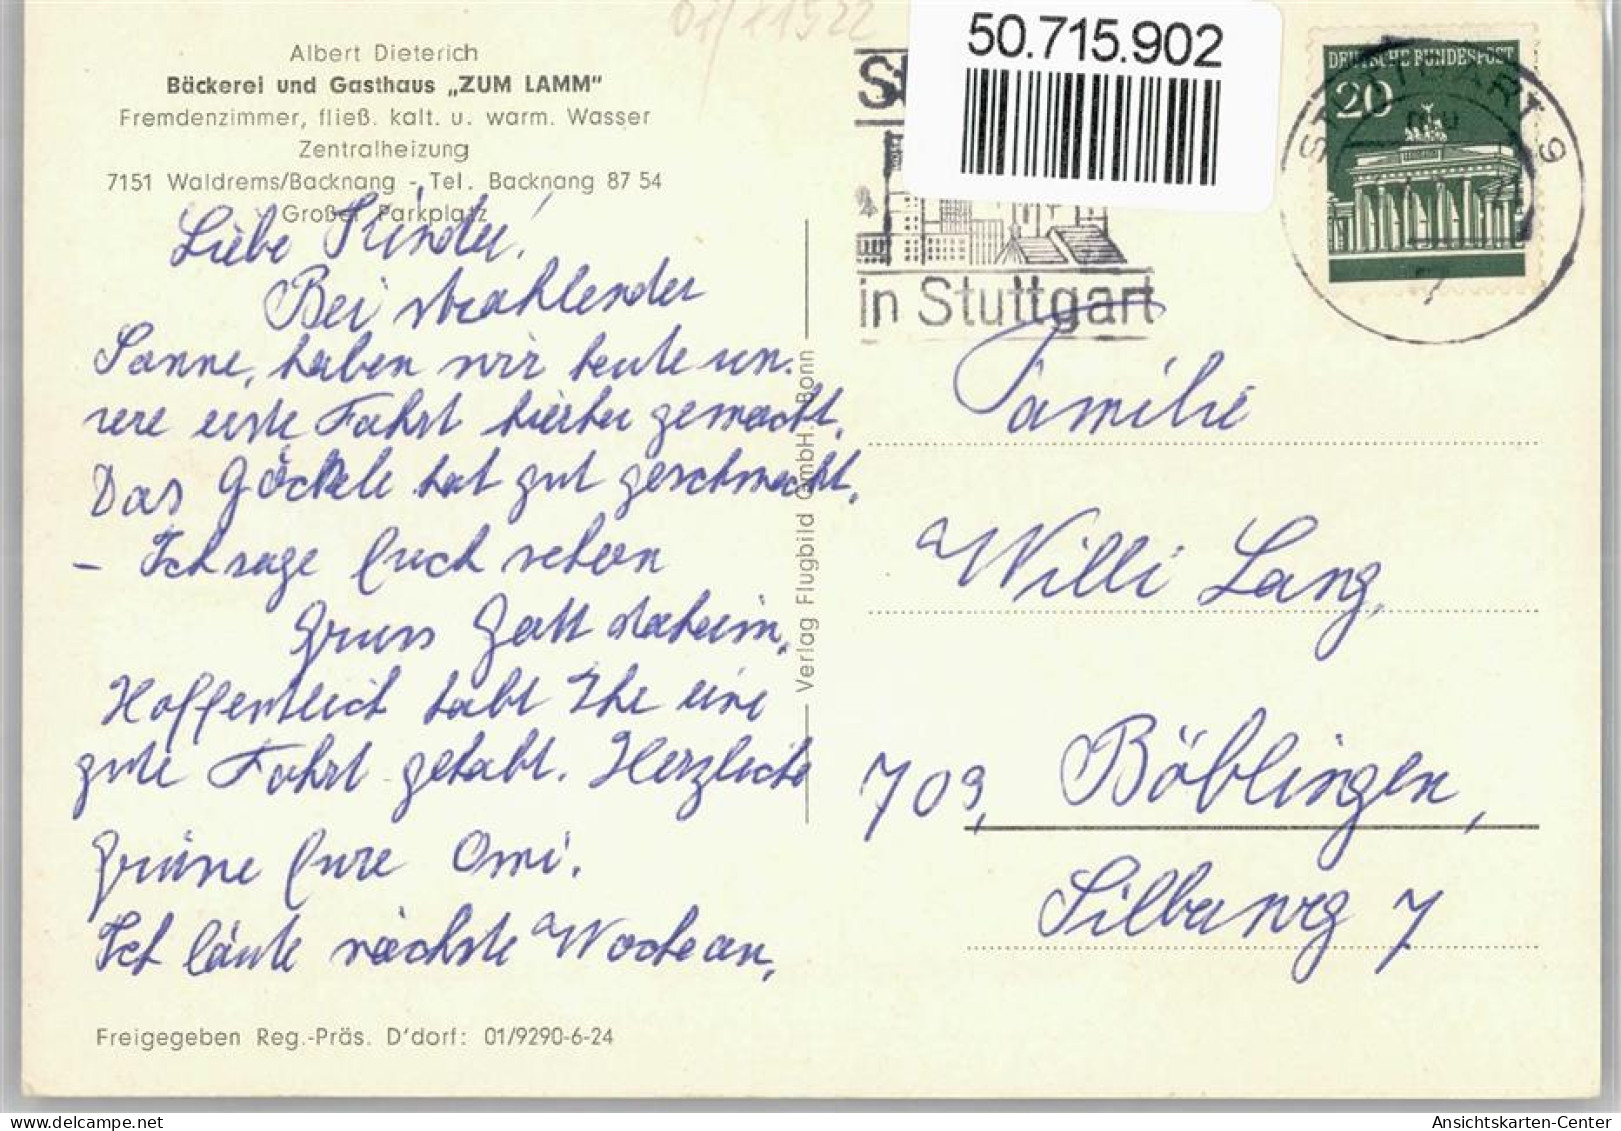 01/11522
Albert Dieterich
Bäckerei und Gasthaus „ZUM LAMM"
Fremdenzimmer, fließ. kalt. u. warm. Wasser
Zentralheizung
7151 Waldrems/Backnang - Tel. Backnang 87 54
Großer Parkplatz
Liebe Kinder!
Bei strahlender
Sonne, haben wir heute un-
sere erste Fahrt hierher gemacht.
Das Göckele hat gut geschmeckt.
- Ich sage Euch schon
Grüss Gott daheim.
Hoffentlich habt Ihr eine
gute Fahrt gehabt. Herzliche
Grüsse Eure Omi.
Ich läute nächste Woche an.
Freigegeben Reg.-Präs. D'dorf: 01/9290-6-24
Verlag Flugbild GmbH. Bonn
50.715.902
in Stuttgart
DEUTSCHE BUNDESPOST
20
STUTTGART 9
Familie
Willi Lang,
703, Böblingen,
Silberweg 7
www.ansichtskarten-center.de
Ansichtskarten-Center